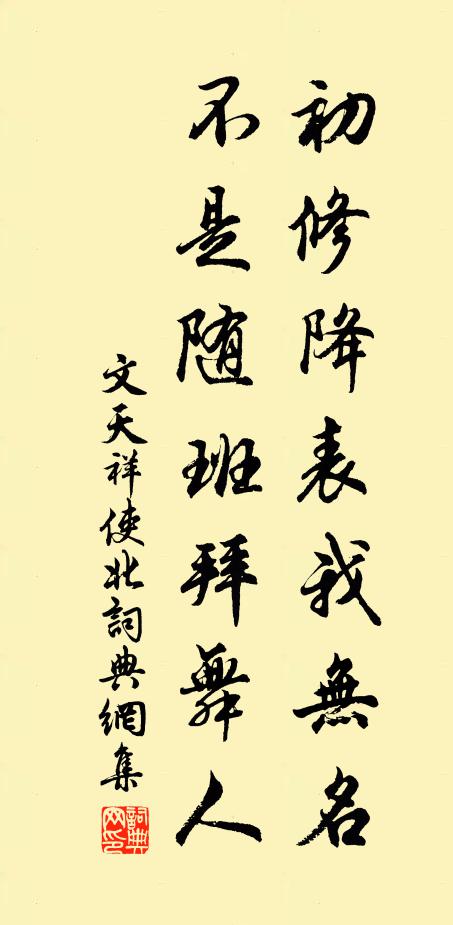 初修降表我無名
不是随班拜舞人
文天祥使北詞典網集
詞典網印